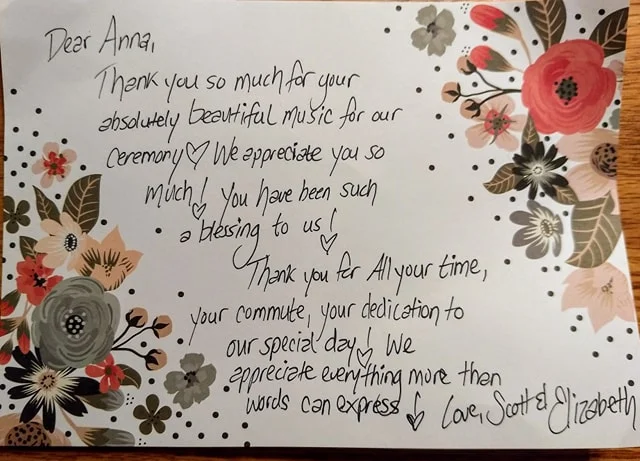 Dear Anna,
Thank you so much for your
absolutely beautiful music for our
ceremony♡ We appreciate you so
much! You have been such
a blessing to us!
Thank you for All your time,
your commute, your dedication to
our special day! We
appreciate everything more than
words can express! Love, Scott & Elizabeth